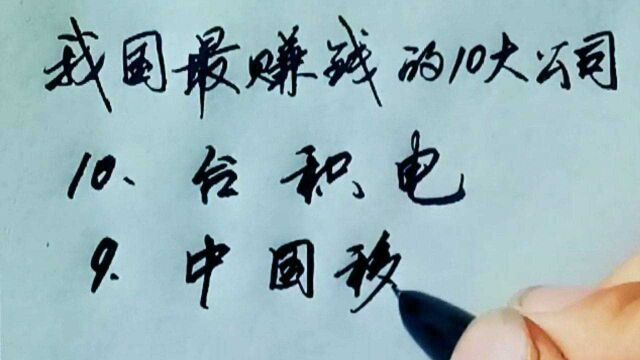 我国最赚钱的10大公司
10、台积电
9、中国移